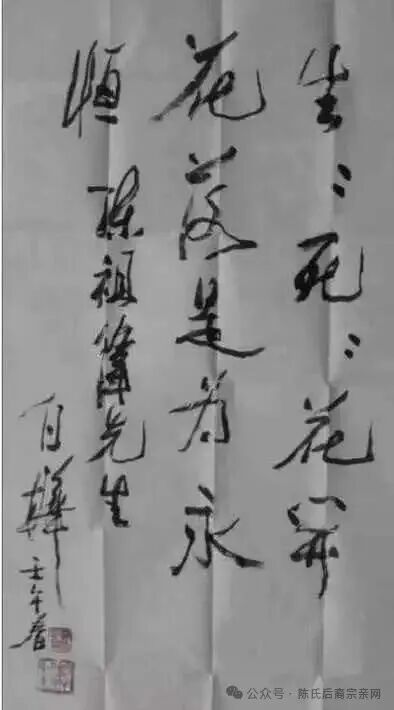 生〻死〻花开
花落是为永
恒 陈祖先生
白桦 壬午春
公众号·陈氏后裔宗亲网